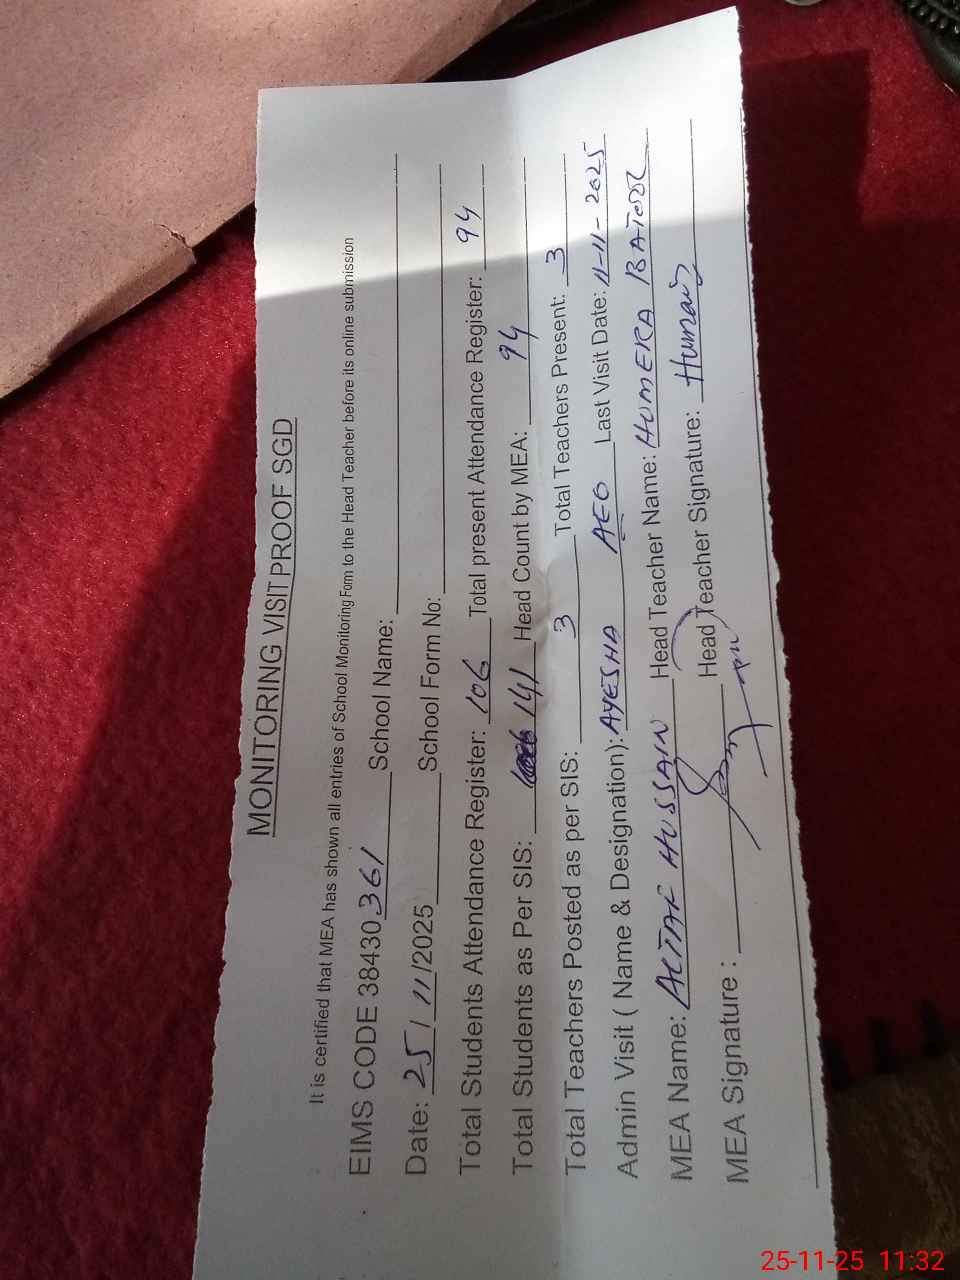 MONITORING VISIT PROOF SGD
It is certified that MEA has shown all entries of School Monitoring Form to the Head Teacher before its online submission
EIMS CODE 38430361 School Name:
Date: 25/11/2025 School Form No:
Total Students Attendance Register: 106 Total present Attendance Register: 94
Total Students as Per SIS: 141 Head Count by MEA: 94
Total Teachers Posted as per SIS: 3 Total Teachers Present: 3
Admin Visit ( Name & Designation): AYESHA AEO Last Visit Date: 11-11-2025
MEA Name: ALTAF HUSSAIN Head Teacher Name: HUMERA BATOOL
MEA Signature : Head Teacher Signature: Humaira
25-11-25 11:32